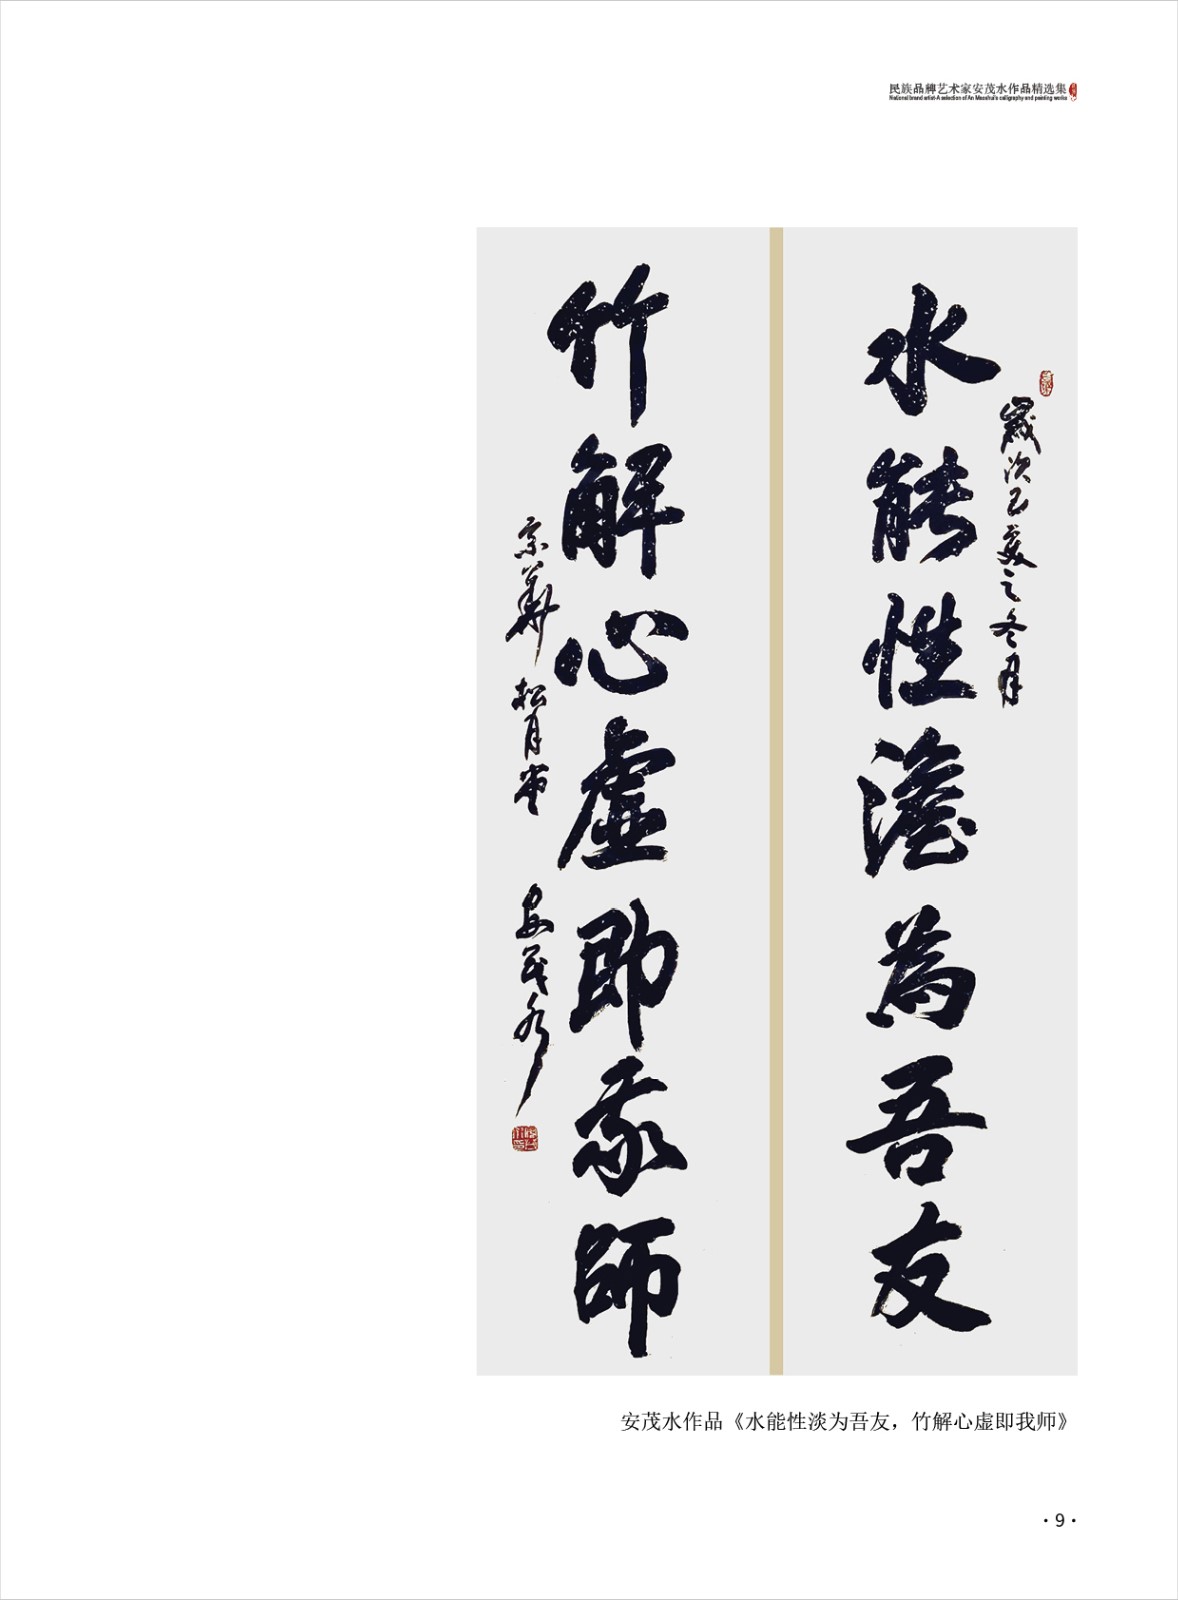 民族品牌艺术家安茂水作品精选集
National brand artist-A selection of An Maoshui's calligraphy and painting works
歲次己亥之冬月
水能性澹為吾友
竹解心虛即我師
京華松月堂
安茂水
安茂水作品《水能性淡为吾友，竹解心虚即我师》
·9·